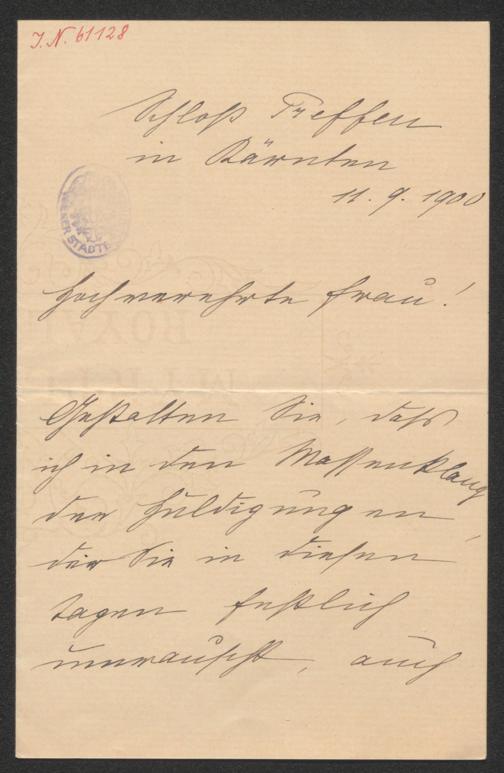 J. N. 61128
Schloß Treffen
in Kärnten
11. 9. 1900
WIENER STADTB
Hochverehrte Frau!
Gestatten Sie, daß
ich in den Massenklang
der Huldigungen,
der Sie in diesen
Tagen festlich
umrauscht, auch